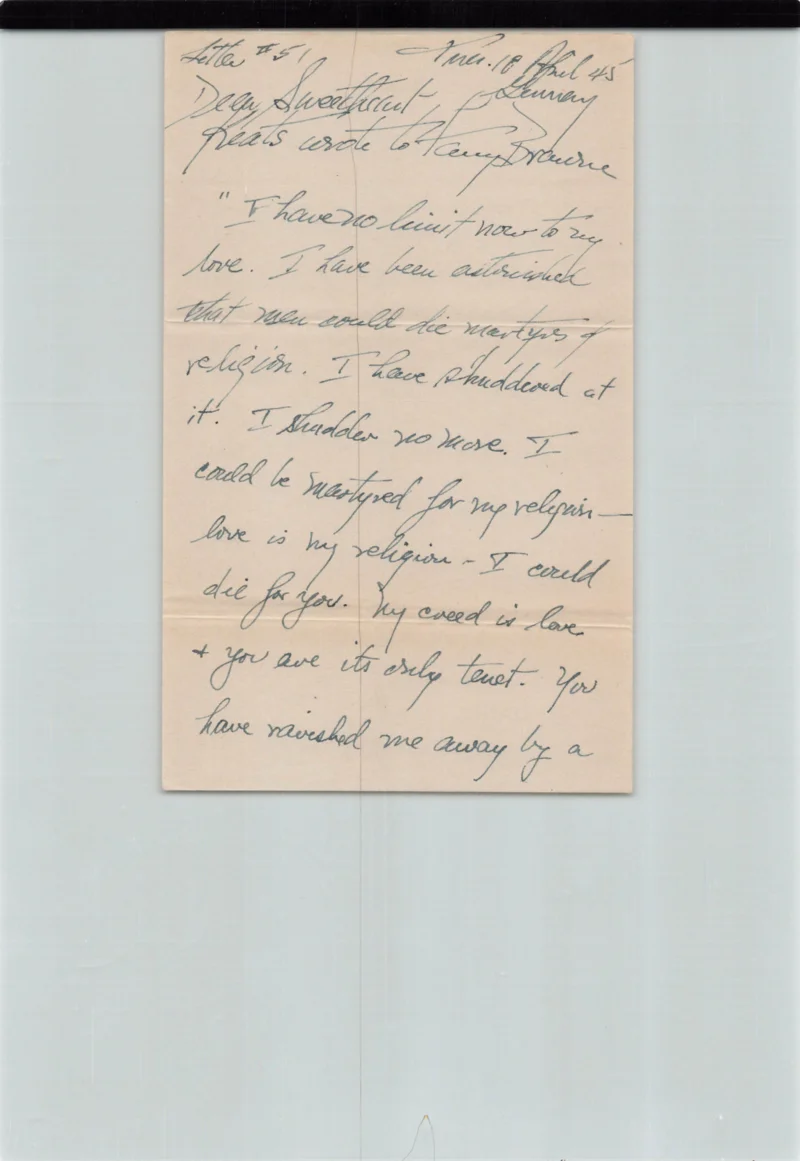 Letter #51
18 April 45
Germany
Dear Sweetheart
Keats wrote to Fanny Brawne
" I have no limit now to my
love. I have been astonished
that men could die martyrs of
religion. I have shuddered at
it. I shudder no more. I
could be martyred for my religion —
love is my religion - I could
die for you. My creed is love
+ you are its only tenet. You
have ravished me away by a